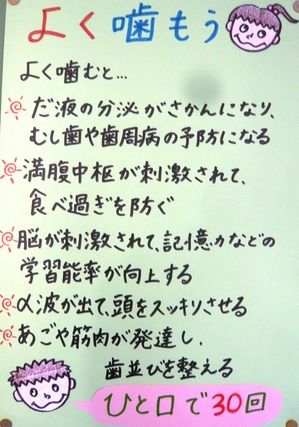 よく噛もう
よく噛むと…
だ液の分泌がさかんになり、
むし歯や歯周病の予防になる
満腹中枢が刺激されて、
食べ過ぎを防ぐ
脳が刺激されて、記憶力などの
学習能率が向上する
α波が出て、頭をスッキリさせる
あごや筋肉が発達し、
歯並びを整える
ひと口で30回